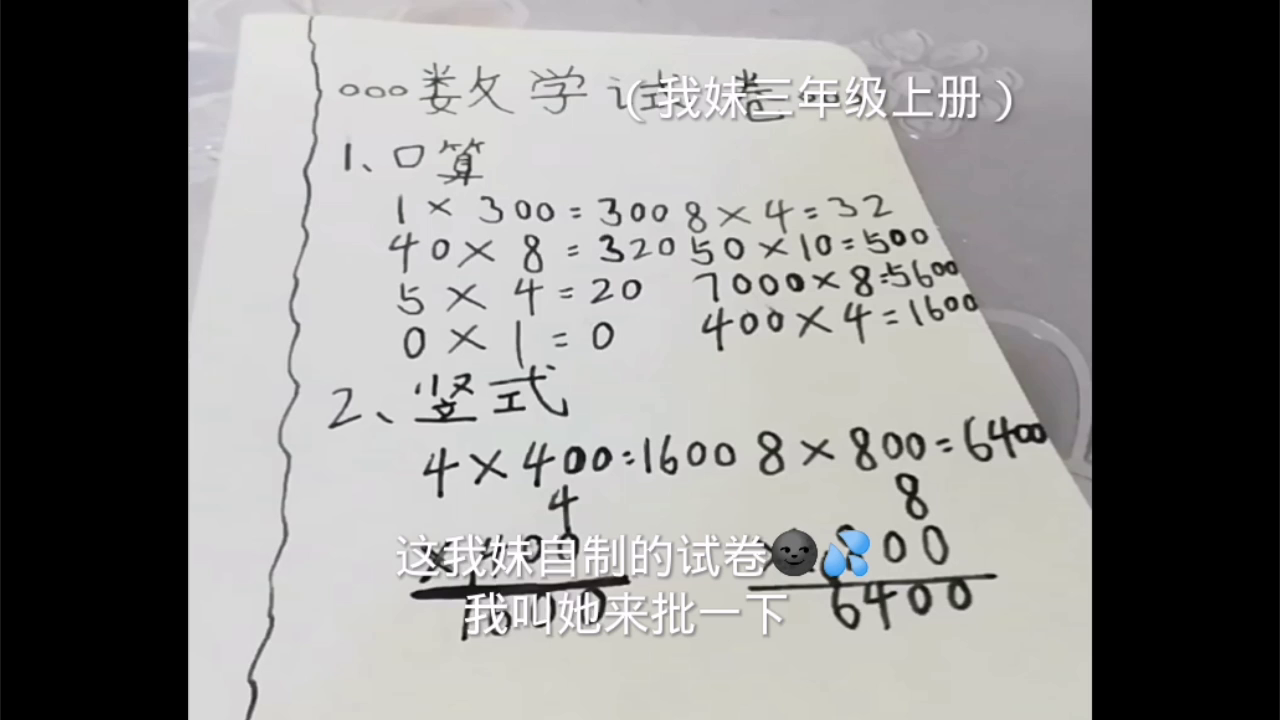 °°°数学试卷°°°
（我妹三年级上册）
1、口算
1 × 300 = 300 8 × 4 = 32
40 × 8 = 320 50 × 10 = 500
5 × 4 = 20 7000 × 8 = 5600
0 × 1 = 0 400 × 4 = 1600
2、竖式
4 × 400 = 1600 8 × 800 = 6400
4 8
× 400 × 800
这我妹自制的试卷🌚💦
1600 6400
我叫她来批一下